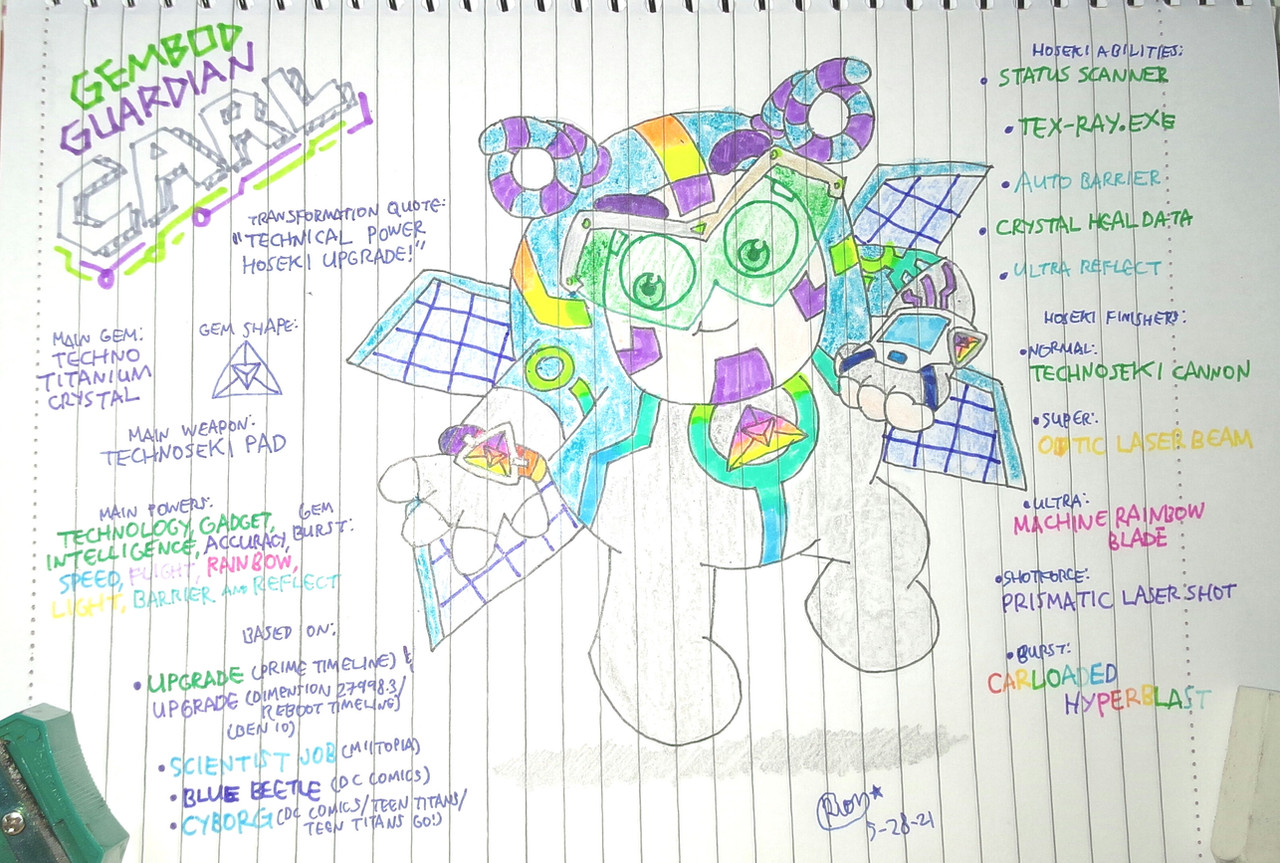 GEMBOD
GUARDIAN
CARL
TRANSFORMATION QUOTE:
"TECHNICAL POWER
HOSEKI UPGRADE!"
MAIN GEM:
TECHNO
TITANIUM
CRYSTAL
GEM SHAPE:
MAIN WEAPON:
TECHNOSEKI PAD
MAIN POWERS:
TECHNOLOGY, GADGET,
INTELLIGENCE, ACCURACY,
SPEED, FLIGHT, RAINBOW,
LIGHT, BARRIER AND REFLECT
GEM
BURST:
BASED ON:
• UPGRADE (PRIME TIMELINE) &
UPGRADE (DIMENSION 27998.3/
REBOOT TIMELINE)
(BEN 10)
• SCIENTIST JOB (MIITOPIA)
• BLUE BEETLE (DC COMICS)
• CYBORG (DC COMICS/TEEN TITANS/
TEEN TITANS GO!)
HOSEKI ABILITIES:
• STATUS SCANNER
• TEX-RAY.EXE
• AUTO BARRIER
• CRYSTAL HEAL DATA
• ULTRA REFLECT
HOSEKI FINISHERS:
• NORMAL:
TECHNOSEKI CANNON
• SUPER:
OPTIC LASER BEAM
• ULTRA:
MACHINE RAINBOW
BLADE
• SHOTFORCE:
PRISMATIC LASER SHOT
• BURST:
CARLOADED
HYPERBLAST
5-28-21